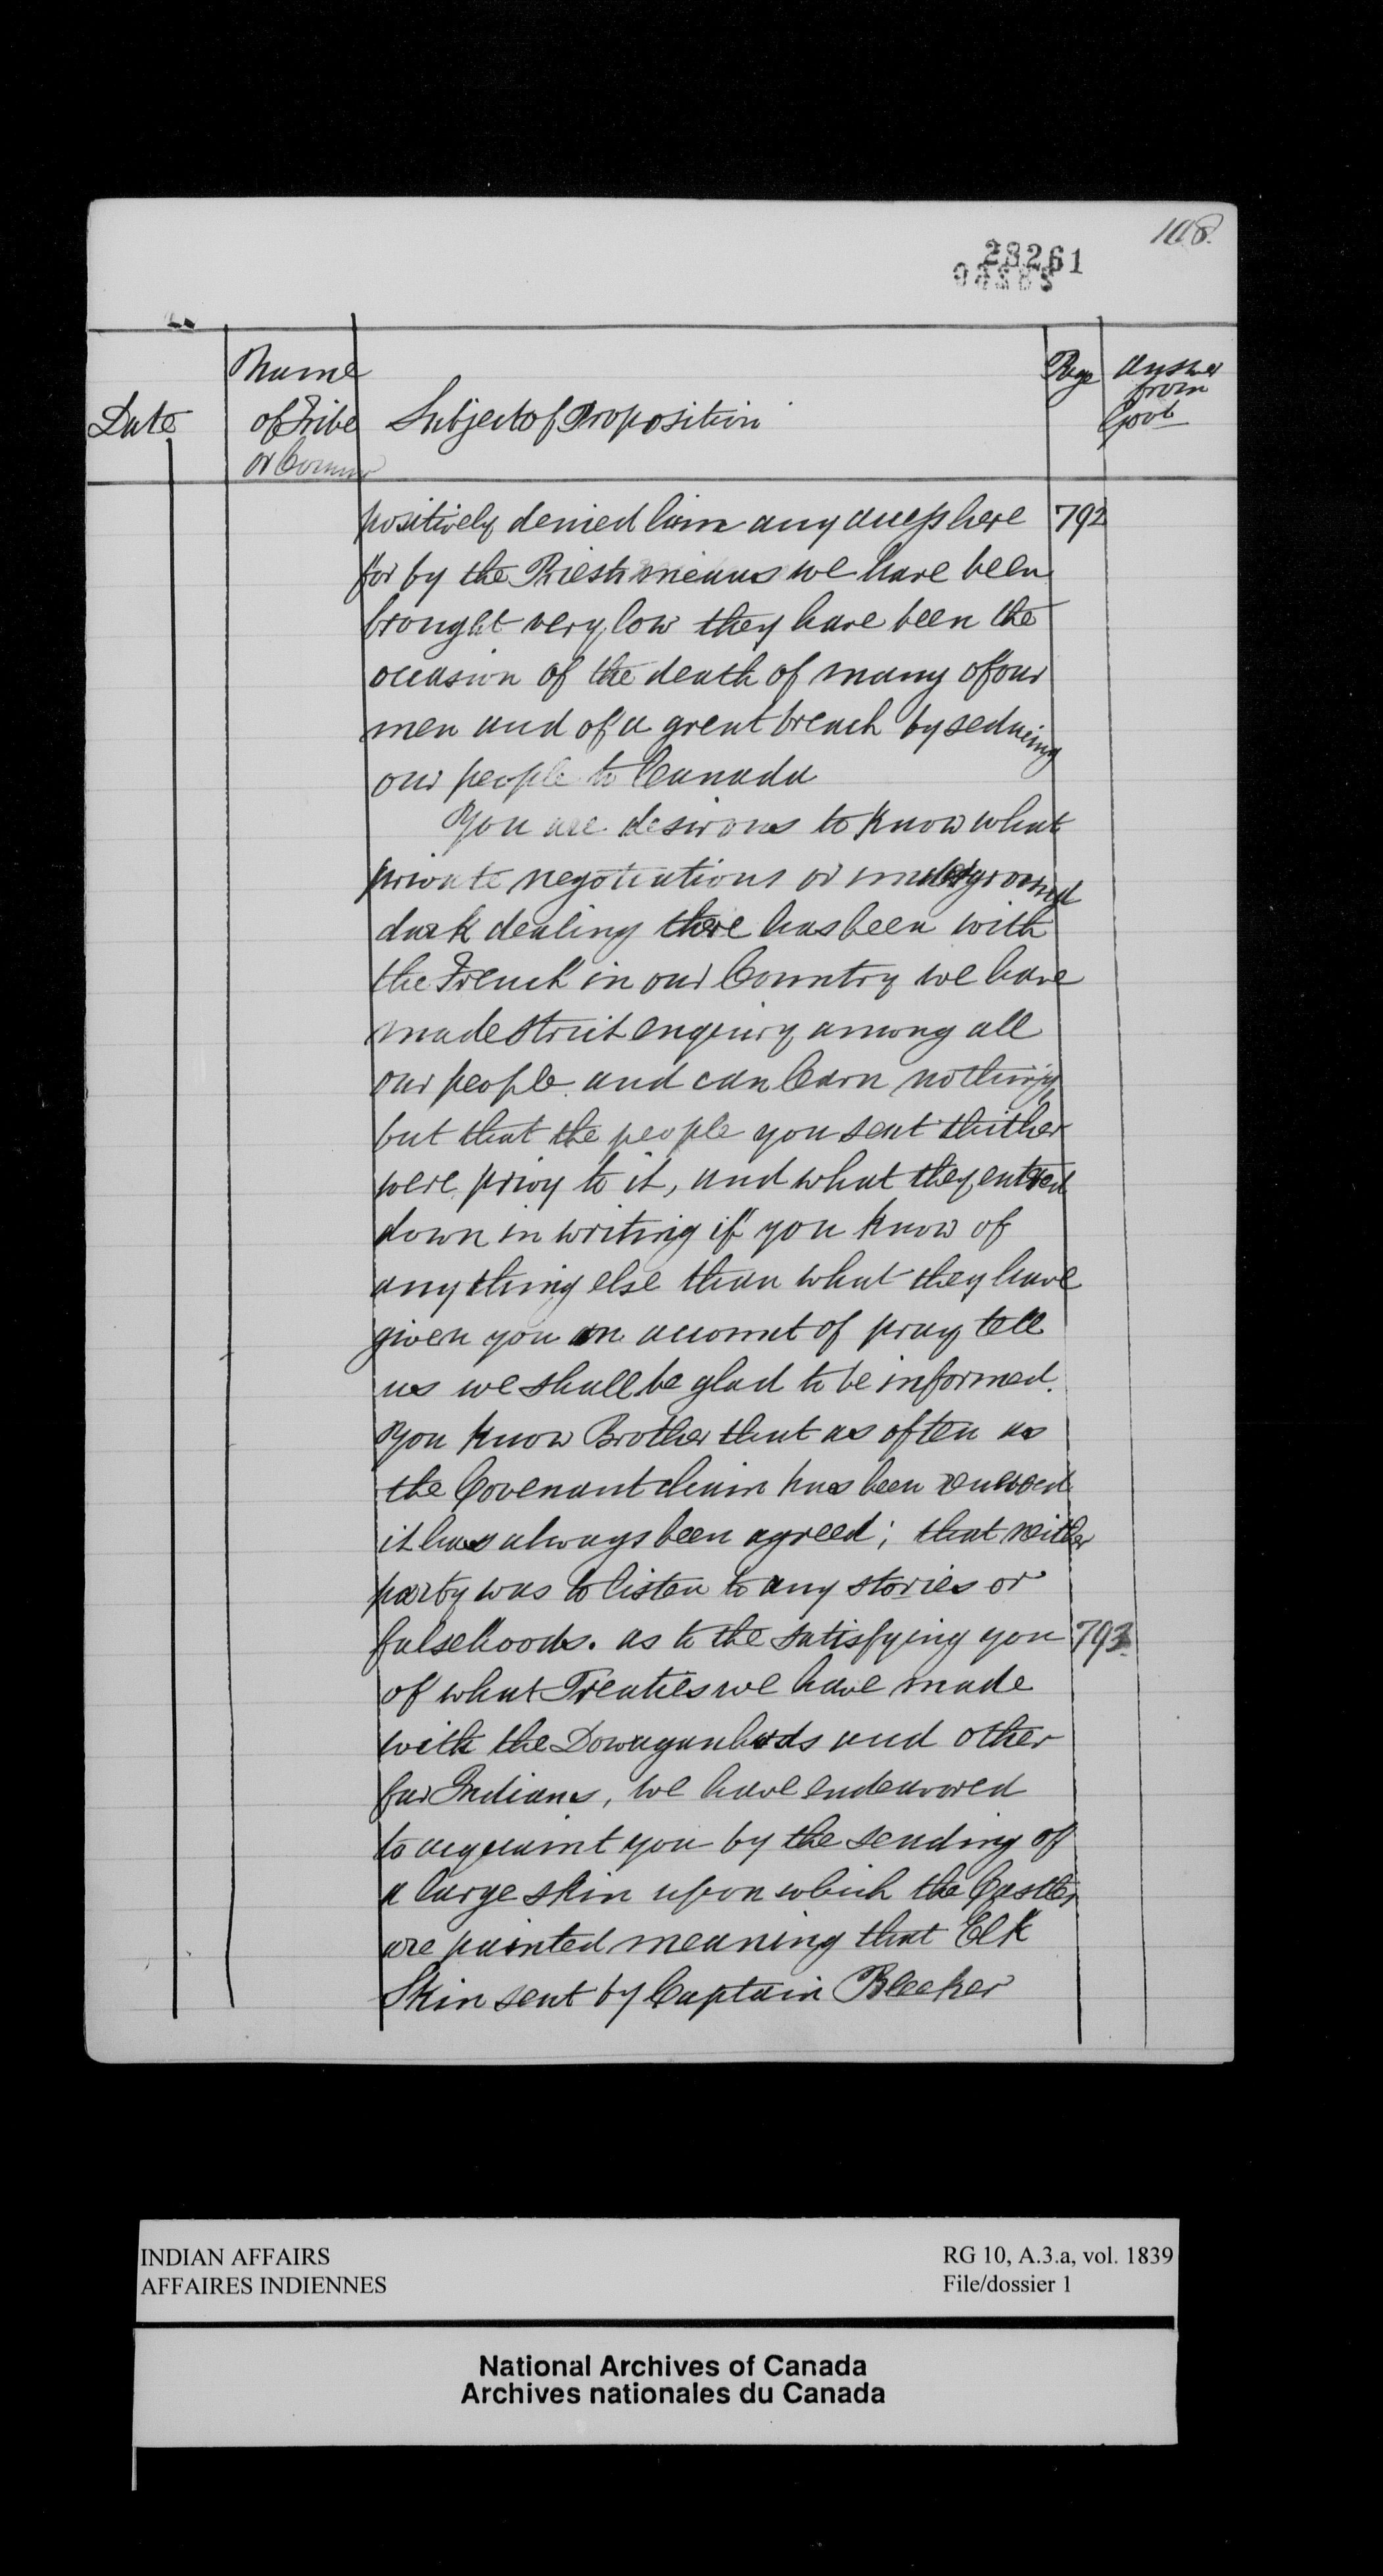 108.
28261
Date
Name
of Tribe
or Comm
Subject of Proposition
Page
Answer
from
Govt
positively denied him any access here 792
for by the Priests means we have been
brought very low they have been the
occasion of the death of many of our
men and of a great breach by seducing
our people to Canada
You are desirous to know what
private negotiations or underground
dark dealing there has been with
the French in our Country we have
made strict enquiry among all
our people and can learn nothing
but that the people you sent thither
were privy to it, and what they entred
down in writing if you know of
any thing else than what they have
given you an account of pray tell
us we shall be glad to be informed.
You know Brother that as often as
the Covenant chain has been renewed
it has always been agreed; that neither
party was to listen to any stories or
falsehoods. as to the satisfying you 793
of what Treaties we have made
with the Dowaganhads and other
far Indians, we have endeavored
to acquaint you by the sending of
a large skin upon which the Castles
are painted meaning that Elk
Skin sent by Captain Bleeker
INDIAN AFFAIRS
AFFAIRES INDIENNES
RG 10, A.3.a, vol. 1839
File/dossier 1
National Archives of Canada
Archives nationales du Canada